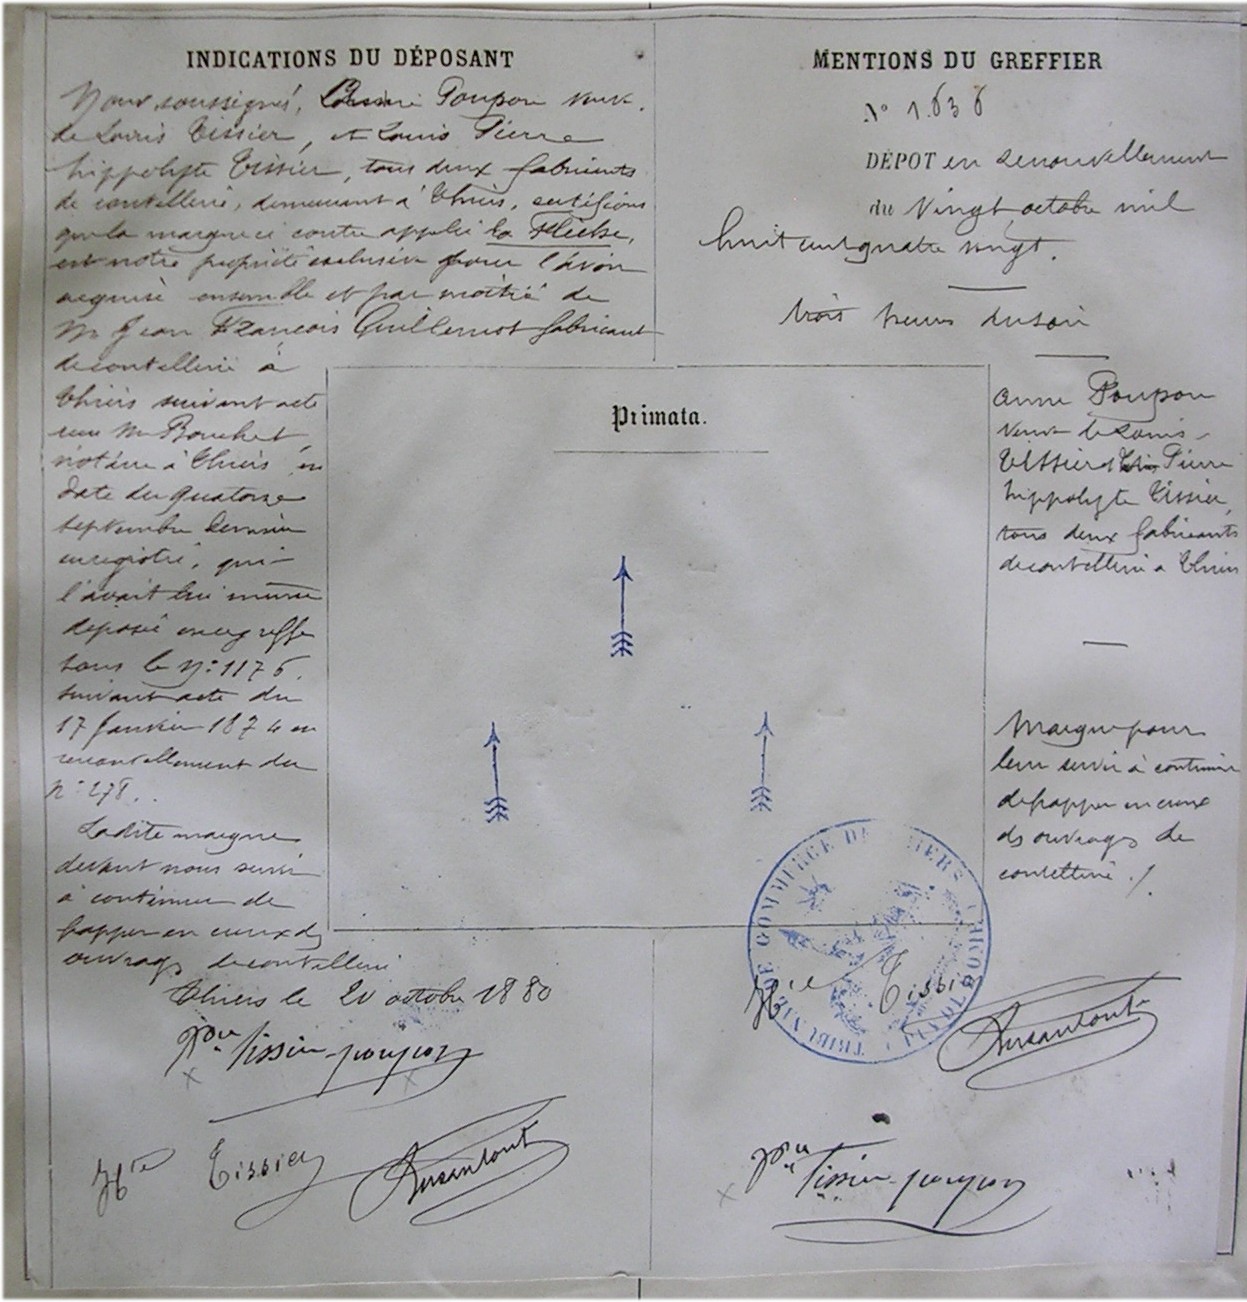 INDICATIONS DU DÉPOSANT
Nous soussignés, Poupon veuve
de Louis Tissier, et Louis Pierre
hippolyte Tissier, tous deux fabricants
de coutellerie, demeurant à Thiers, certifions
que la marque ci contre appelée la Flèche,
est notre propriété exclusive pour l'avoir
acquise ensemble et par moitié de
M. Jean François Guillemot fabricant
de coutellerie à
Thiers suivant acte
reçu Me Bouchet
notaire à Thiers en
date du quatorze
septembre dernier
enregistré, qui
l'avait lui même
déposée au greffe
sous le No: 1176,
suivant acte du
17 Janvier 1874 en
renouvellement du
no: 278.
Ladite marque
devant nous servir
à continuer de
frapper en creux des
ouvrages de coutellerie
Thiers le 20 octobre 1880
Tissier-poupon
Hte Tissier
MENTIONS DU GREFFIER
No 1.636
DÉPOT en renouvellement
du Vingt octobre mil
huit cent quatre vingt.
trois heures du soir
Primata.
anne Poupon
veuve de Louis
Tissier et Pierre
hippolyte Tissier,
tous deux fabricants
de coutellerie à Thiers
Marque pour
leur servir à continuer
de frapper en creux
ds ouvrages de
coutellerie ./.
TRIBUNAL DE COMMERCE DE THIERS
Hte Tissier
Tissier-poupon